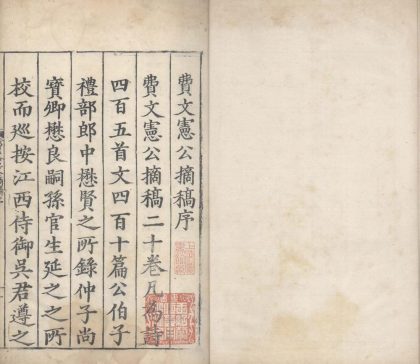 費文憲公摘稿序
費文憲公摘稿二十卷凡為詩
四百五首文四百十篇公伯子
禮部郎中懋賢之所錄仲子尚
寶卿懋良嗣孫官生延之之所
校而巡按江西侍御吳君遵之